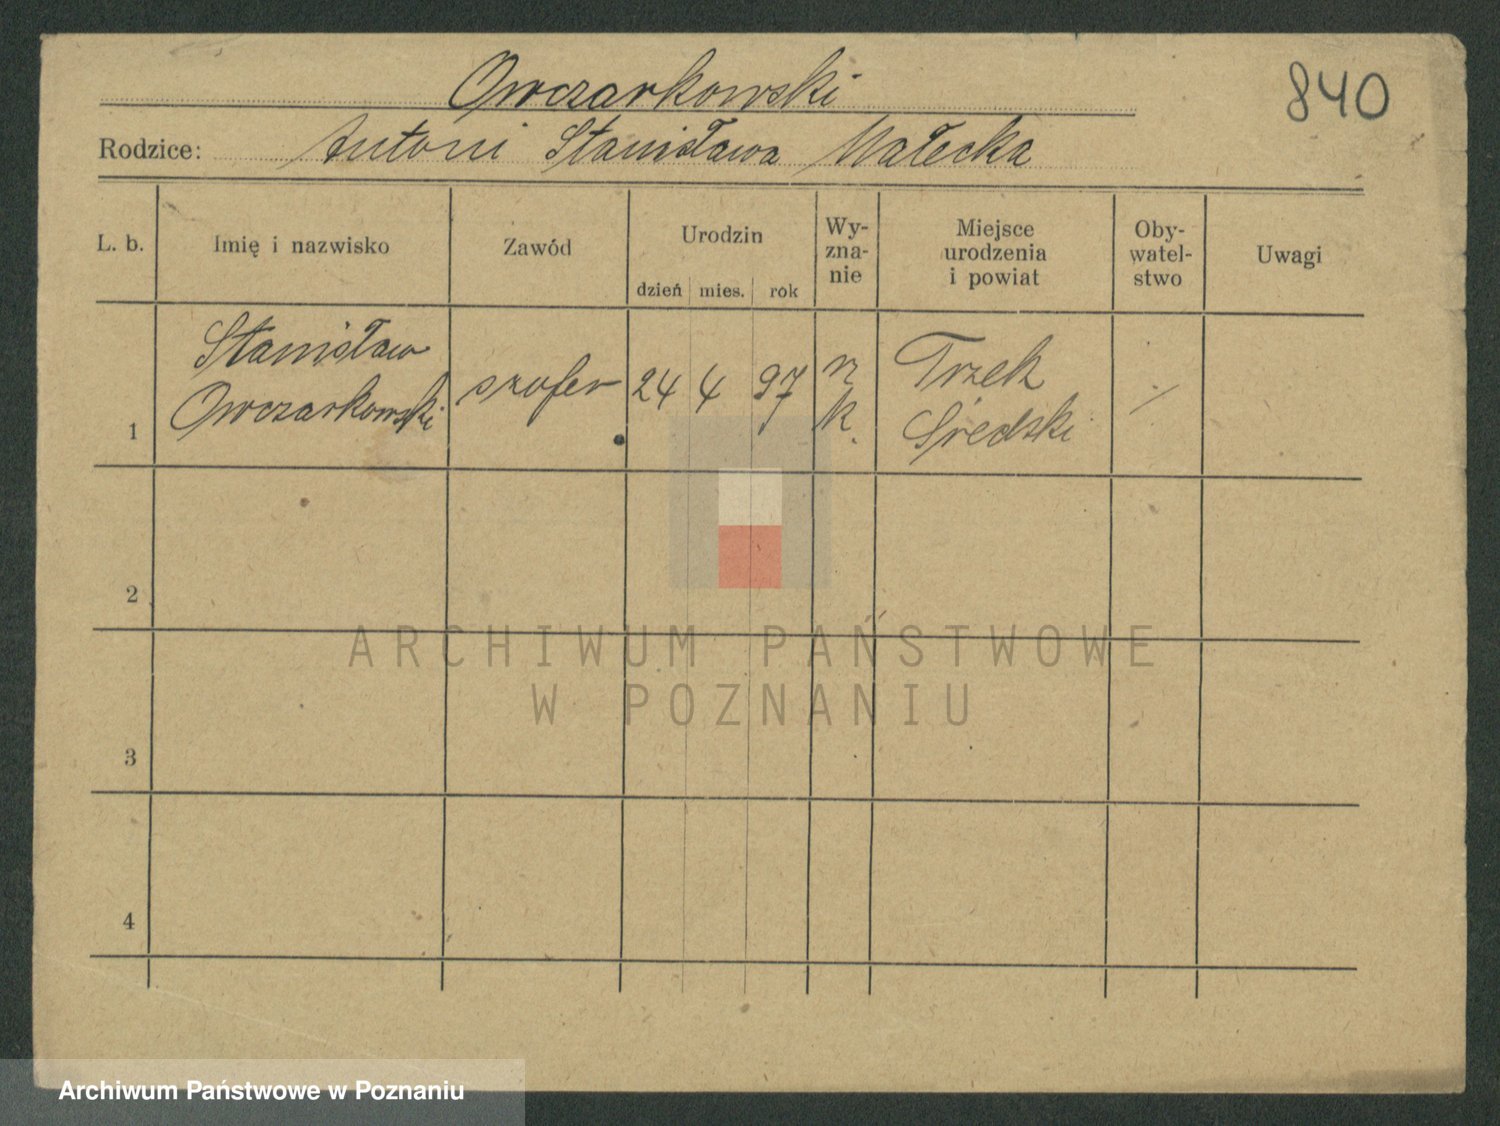 Owczarkowski
840
Rodzice: Antoni Stanisława Małecka
L. b.
Imię i nazwisko
Zawód
Urodzin
dzień mies. rok
Wy-
zna-
nie
Miejsce
urodzenia
i powiat
Oby-
watel-
stwo
Uwagi
1
Stanisław
Owczarkowski
szofer
24 4 97
r
k.
Trzek
Średski
/
2
3
4
ARCHIWUM PAŃSTWOWE
W POZNANIU
Archiwum Państwowe w Poznaniu